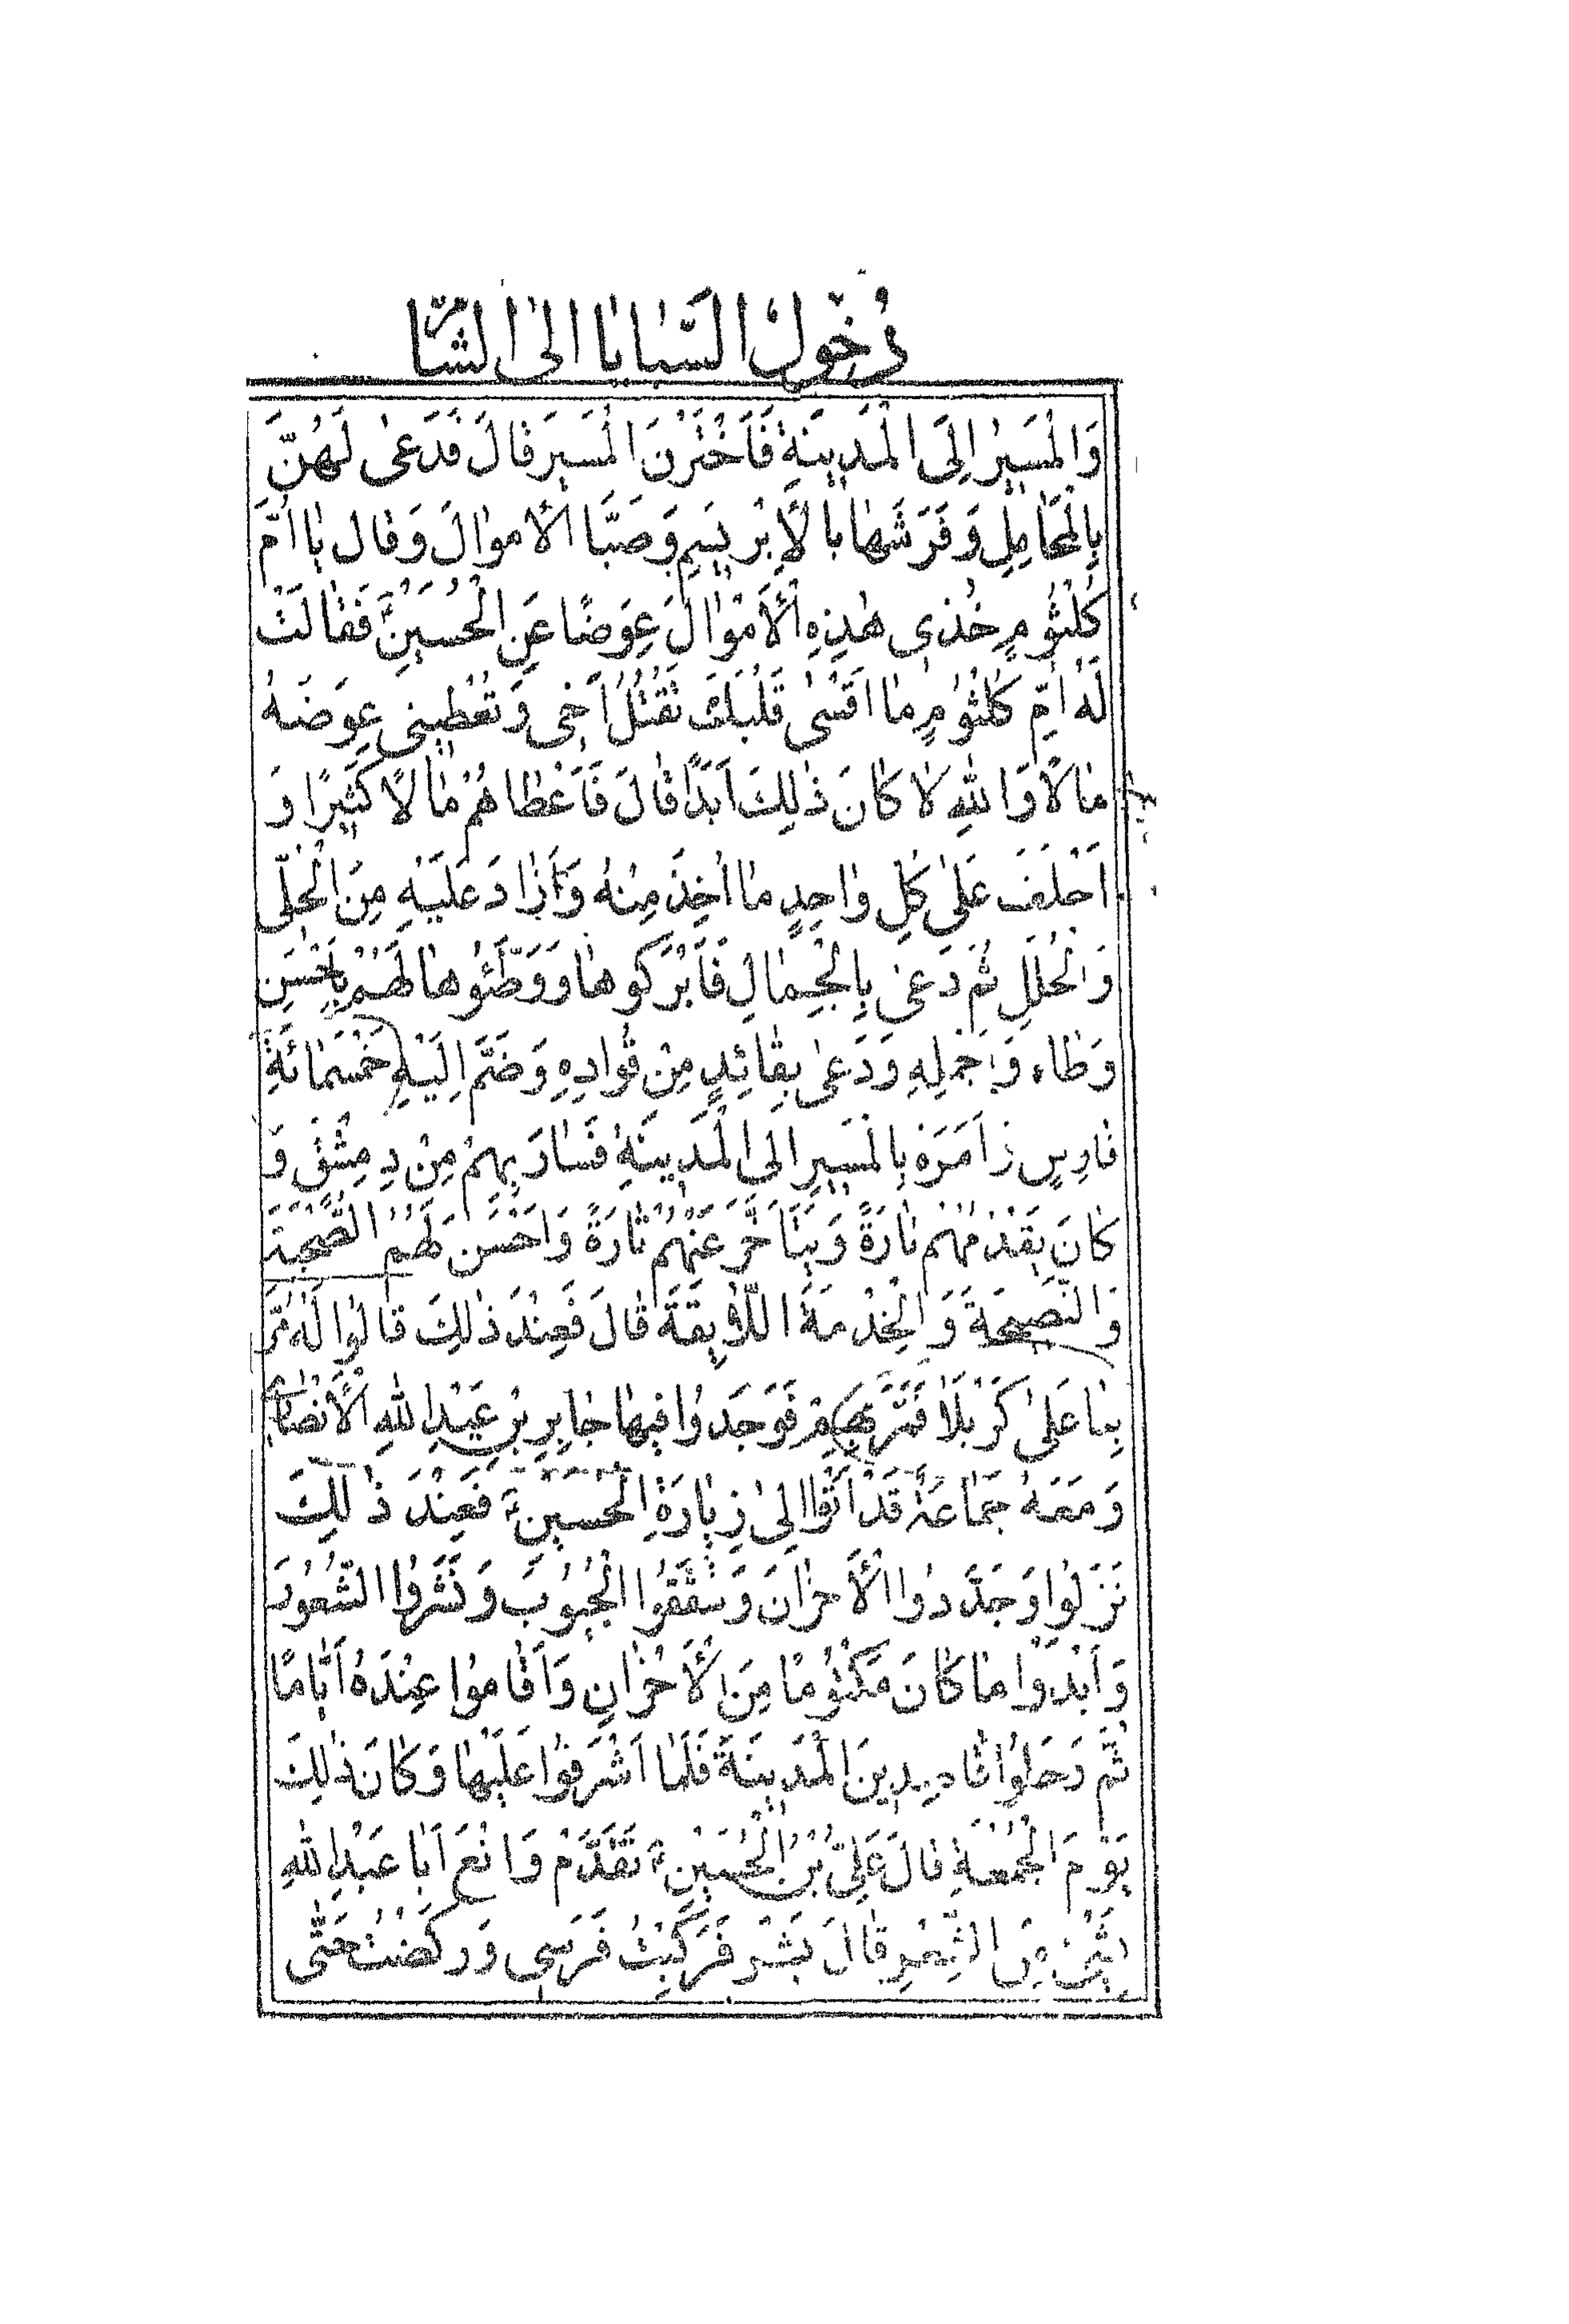 دُخُولُ السَّبايا الى الشّام
وَالْمَسيرِ اِلَى الْمَدينَةِ فَأَخْتَرْنَ الْمَسيرَ قالَ فَدَعى لَهُنَّ
بِالْمَحامِلِ وَفَرَشَها بِالْأَبْريسَمِ وَصَبَّا الْأَموالَ وَقال يا اُمَّ
كُلْثُومٍ خُذى هذِهِ الْأَمْوالَ عِوَضًا عَنِ الْحُسَيْنِ فَقالَتْ
لَهُ اُمِّ كُلْثُومٍ ما اَقْسى قَلْبَكَ تَقْتُلُ اَخى وَتُعْطينى عِوَضَهُ
مالًا وَاللهِ لا كانَ ذلِكَ اَبَدًا قالَ فَاَعْطاهُمْ مالًا كَثيرًا وَ
اَخْلَفَ عَلى كُلِ واحِدٍ ما اُخِذَ مِنْهُ وَأَزادَ عَلَيْهِ مِنَ الْحُلِّى
وَالْحُلَلِ ثُمَ دَعى بِالْجِمالِ فَأَبْرَكوها وَوَطَّئُوها لَهُمْ بِاَحْسَنِ
وَطاء وَاَجْمَلِهِ وَدَعى بِقائِدٍ مِنْ قُوادِهِ وَضَمَّ اِلَيْهِ خَمْسَمائَةِ
فارِسٍ وَاَمَرَهُ بِالْمَسيرِ اِلى الْمَدينَةِ فَسارَ بِهِمْ مِنْ دِمِشْقَ وَ
كانَ يَقْدُمُهُمْ تارَةً وَيَتَأَخَّرَ عَنْهُمْ تارَةً وَاَحْسَنَ لَهُمُ الصُّحْبَةَ
وَالنَّصيحَةَ وَالْخِدْمَةَ اللّايِقَةَ قالَ فَعِنْدَ ذلِكَ قالوُا لَهُ مُرَّ
بِنا عَلى كَرْبَلَا فَمَرَّ بِهِمْ فَوَجَدوُا فيها جابِرِ بْنِ عَبْدِ اللهِ الْأَنْصارى
وَمَعَهُ جَماعَةٌ قَدْ اَتَوْا اِلى زِيارَةِ الْحُسَيْنِ فَعِنْدَ ذلِكَ
نَزَلوُا وَجَدَّدوُا الْأَحزانَ وَشَقَّقوُا الْجُيوُبَ وَنَشَروُا الشُّعُورَ
وَأَبْدَوْا ما كانَ مَكْتوُمًا مِنَ الْأَحْزانِ وَأَقاموُا عِنْدَهُ اَيّامًا
ثُمَّ رَحَلوُا قاصِدينَ الْمَدينَةَ فَلَمّا اَشْرَفوُا عَلَيْها وَكانَ ذلِكَ
يَوْمَ الْجُمُعَةِ قالَ عَلِىُّ بْنُ الْحُسَيْنِ تَقَدَّمْ وَانْعَ اَبا عَبْدِ اللهِ
الشِّعْرِ قالَ بَشَرَ فَرَكِبْتُ فَرَسى وَرَكَضْتُ حَتّى